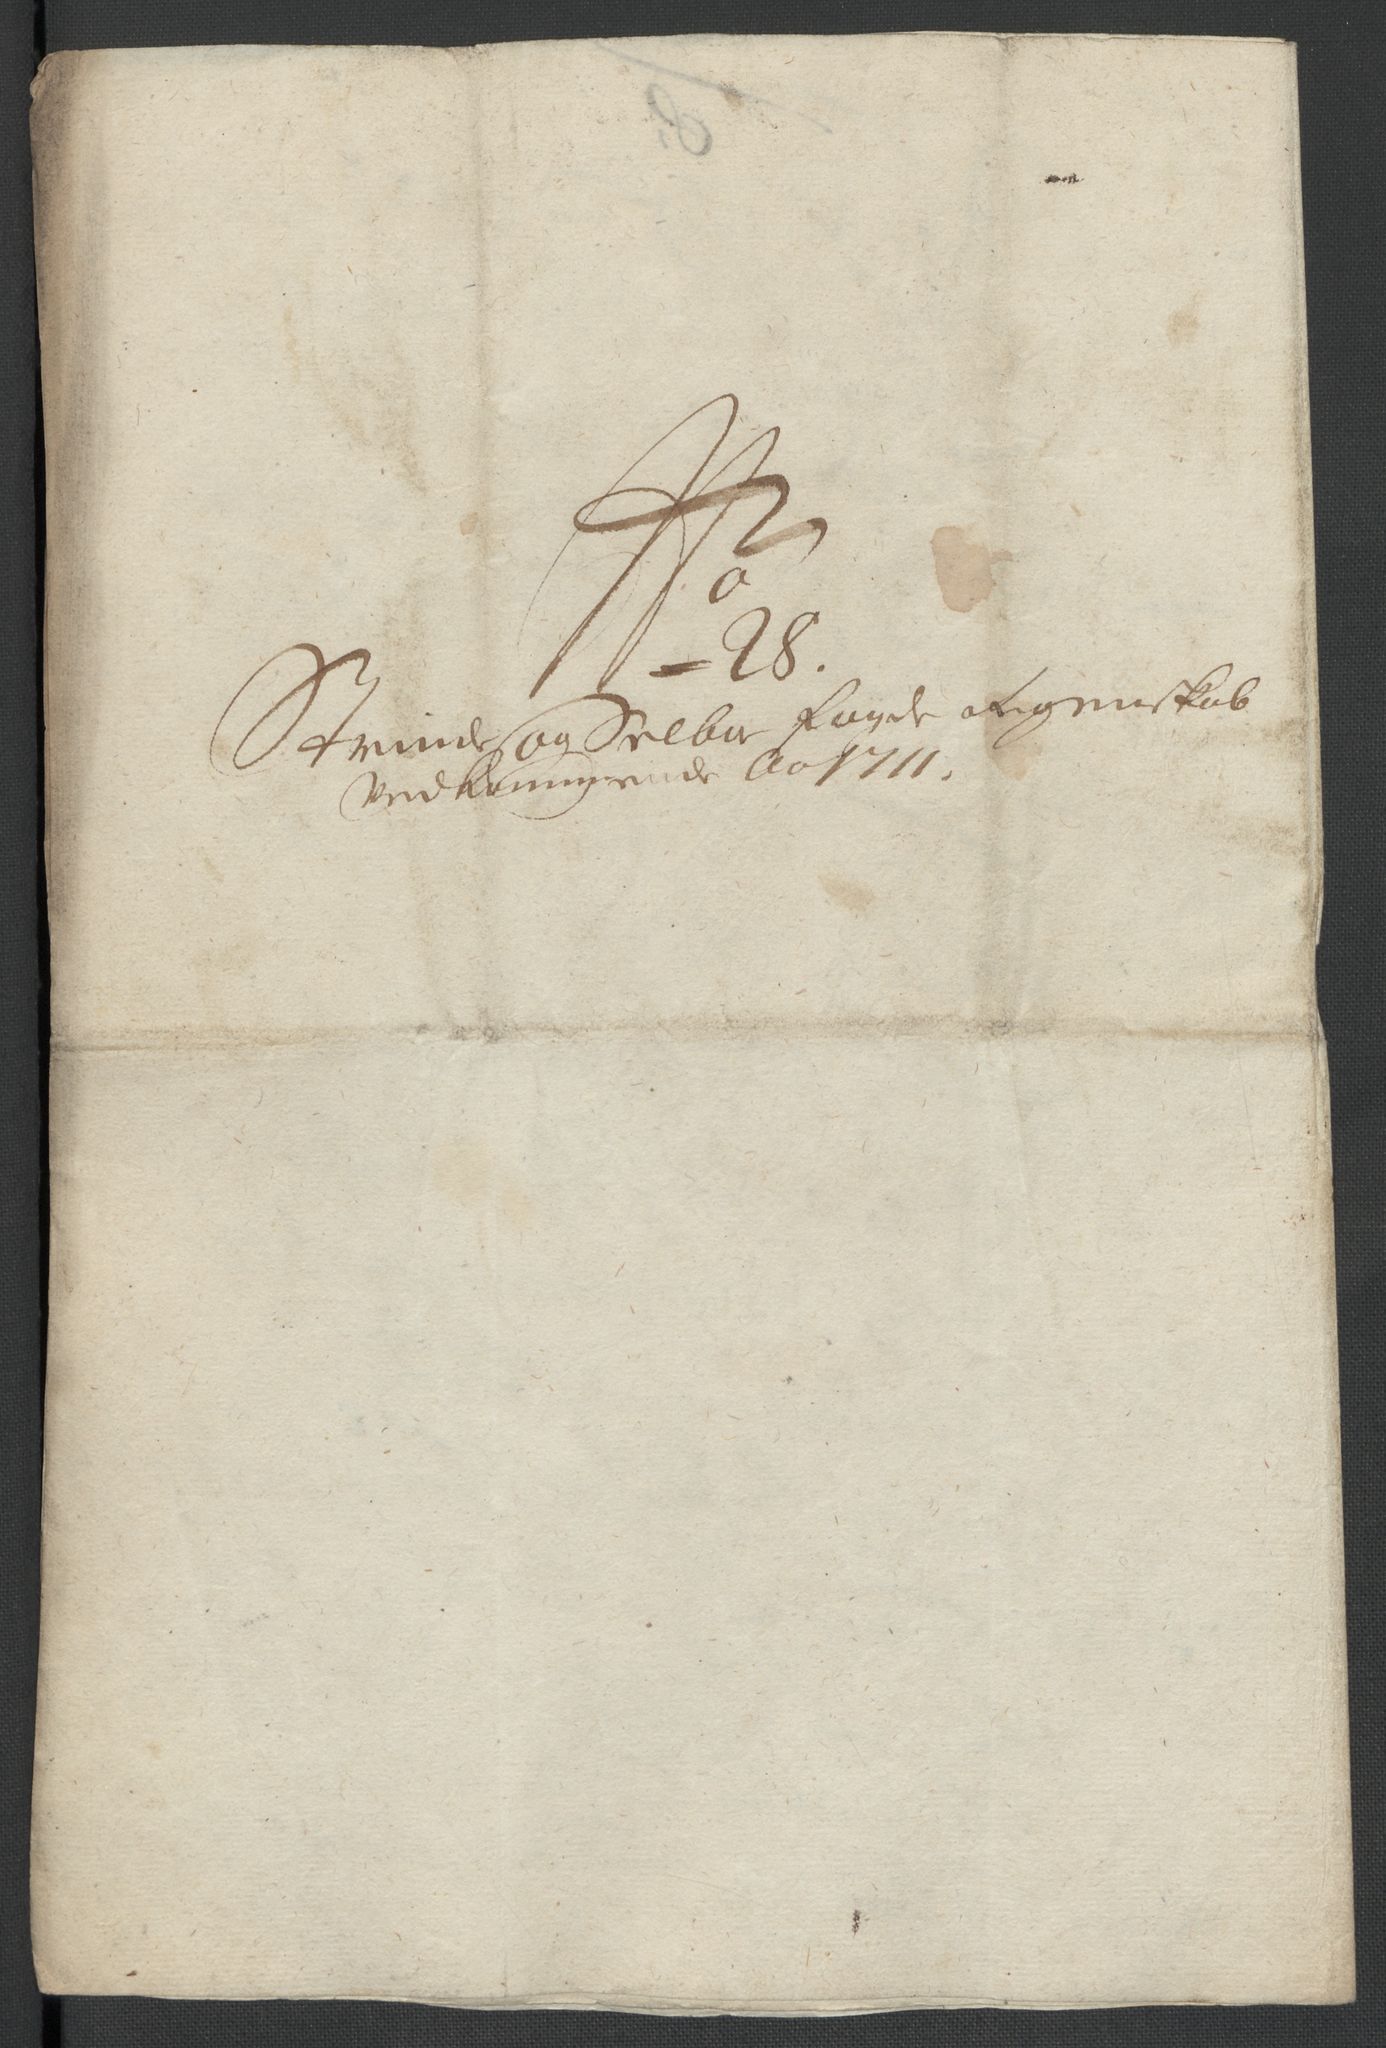 No
– 28.
Strinde og Selboe fogde Regenskab
Vedkommende Ao 1711.